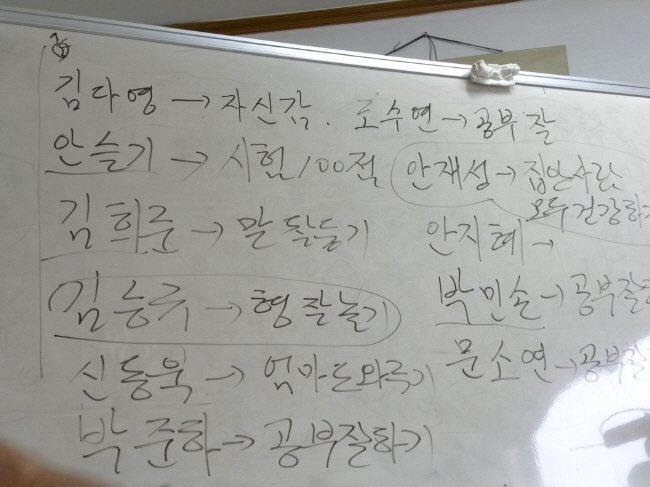 김다영 → 자신감. 도수연 → 공부잘
안슬기 → 시험100점 안재성 → 집안사람 모두건강하기
김희준 → 말잘듣기 안지혜 →
김능루 → 형잘놀기 박민솔 → 공부잘하
신동욱 → 엄마도와주기 문소연 → 공부잘
박준하 → 공부잘하기